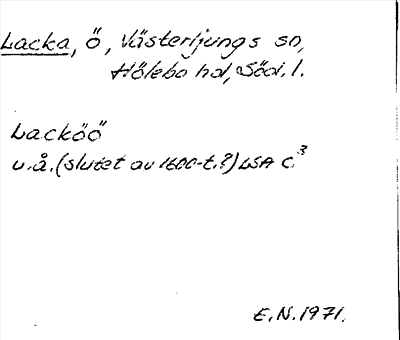 Lacka, Ö, Västerljungs sn,
Hölebo hd, Södl.
Lacköö
u.å. (slutet av 1600-t.?) LSA C³
E.N. 1971.